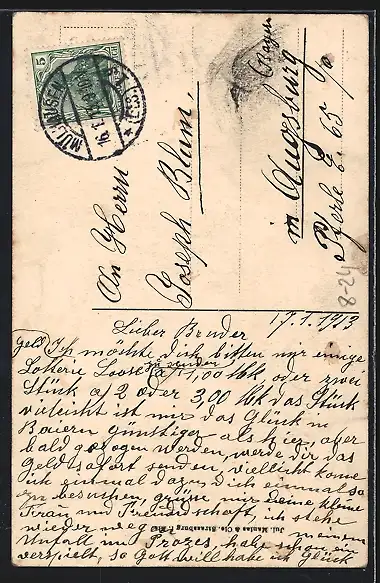 MÜLHAUSEN
(ELS.)
5
(Bayern)
An Herrn
Joseph Blum,
in Augsburg
Pferle E 65 I/o
8-24
17.1.1913
Lieber Bruder
Ich möchte dich bitten mir einige
Geld
Lotterie Loose zu senden
(a 1,00 Mk oder zwei
Stück a/2 oder 3,00 Mk das Stück
vieleicht ist mir das Glück in
Baiern günstiger als hier, aber
bald gezogen werden, werde dir das
Geld sofort senden, vielleicht kome
ich einmal dazu dich einmal so
zu besuchen, grüße mir deine kleine
Frau und Freundschaft, ich stehe
wieder weg meinem
Unfall im Prozes, habe schon ein
verspielt, so Gott will habe ich Glück
Jul. Manias & Cie., Strassburg i. Els.